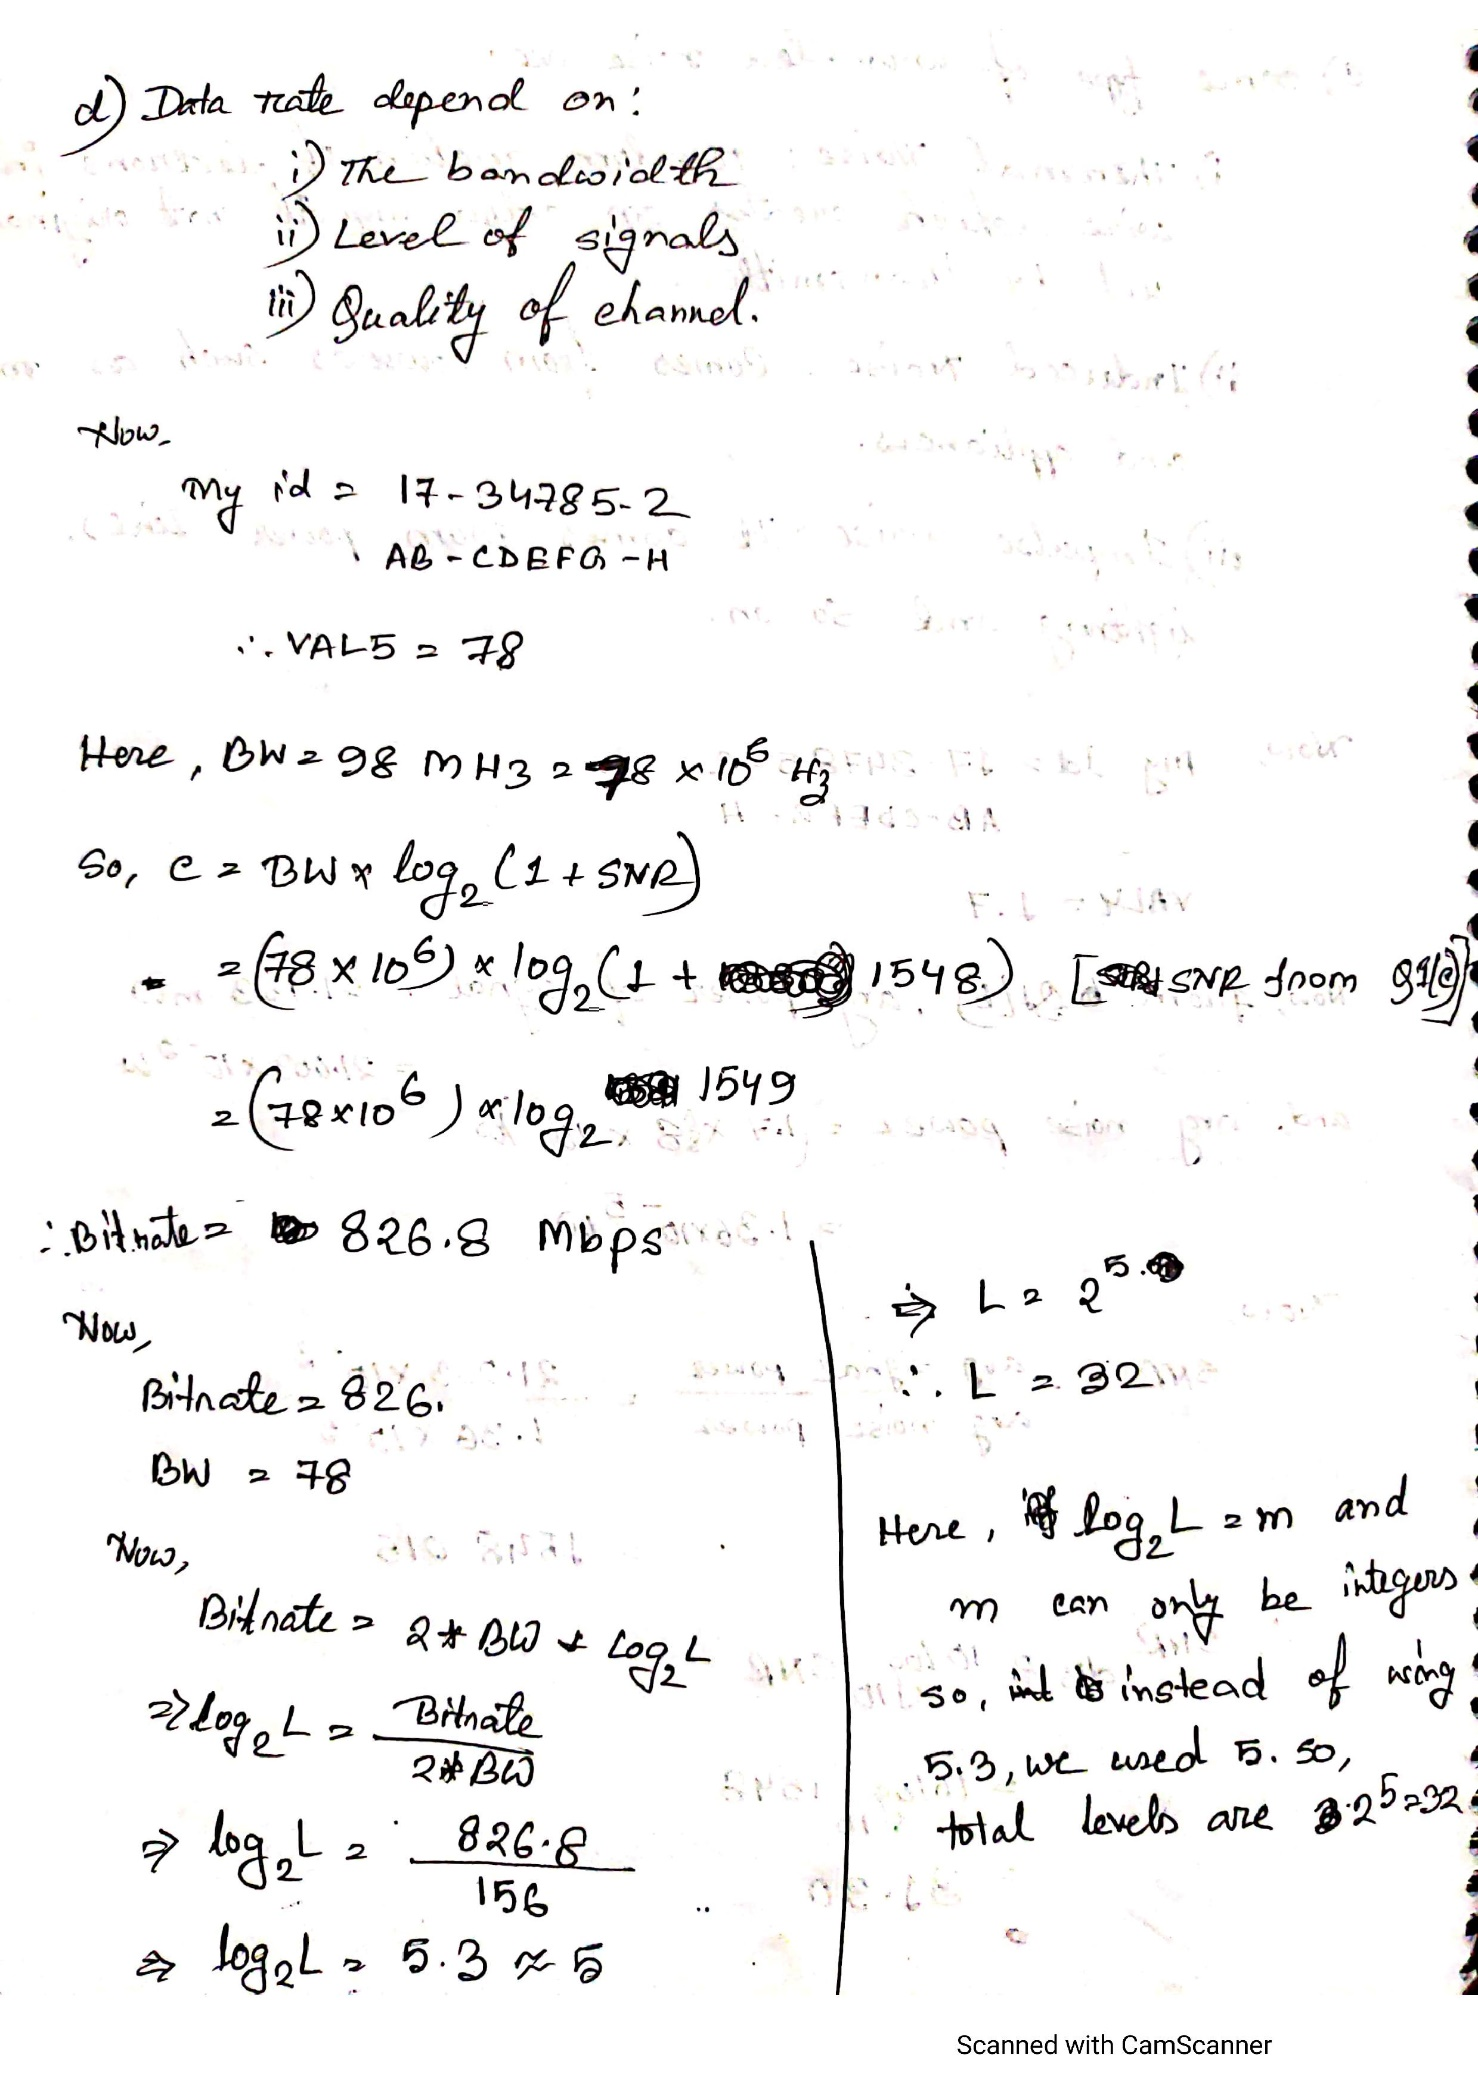 d) Data rate depend on:
i) The bandwidth
ii) Level of signals
iii) Quality of channel.
Now,
My id = 17-34785-2
AB-CDEFG-H
∴ VAL5 = 78
Here, BW = 98 MHz = 78 × 10⁶ Hz
So, C = BW × log₂ (1 + SNR)
= (78 × 10⁶) × log₂ (1 + 1548) [SNR from
= (78 × 10⁶) × log₂ 1549
∴ Bitrate = 826.8 Mbps
Now,
Bitrate = 826.
BW = 78
Now,
Bitrate = 2 * BW * log₂L
⇒ log₂L = Bitrate / 2*BW
⇒ log₂L = 826.8 / 156
⇒ log₂L = 5.3 ≈ 5
⇒ L = 2^5.
∴ L = 32
Here, log₂L = m and
m can only be integers
so, instead of using
5.3, we used 5. so,
total levels are 2⁵=32
Scanned with CamScanner